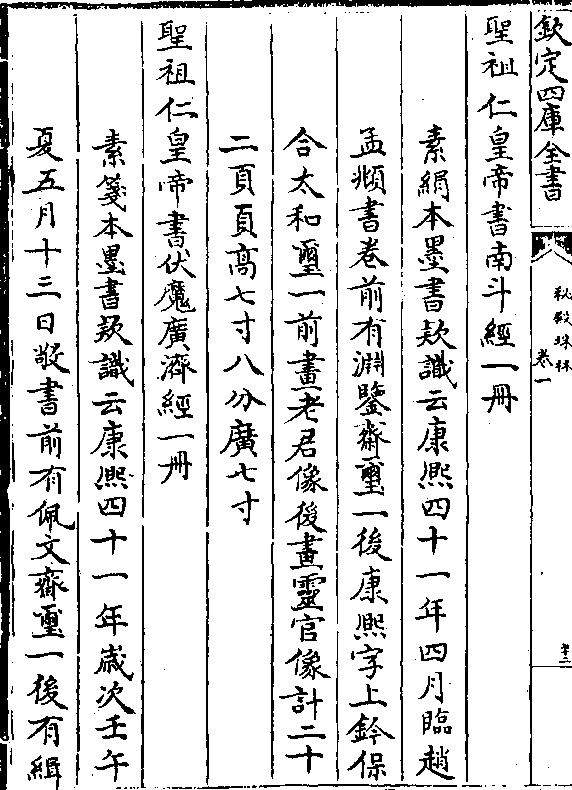 欽定四庫全書
秘殿珠林
卷一
十二
聖祖仁皇帝書南斗經一册
素絹本墨書款識云康熙四十一年四月臨趙
孟頫書卷前有淵鑒齋璽一後康熙字上鈐保
合太和璽一前畫老君像後畫靈官像計二十
二頁頁高七寸八分廣七寸
聖祖仁皇帝書伏魔廣濟經一册
素箋本墨書款識云康熙四十一年歲次壬午
夏五月十三日敬書前有佩文齋璽一後有緝